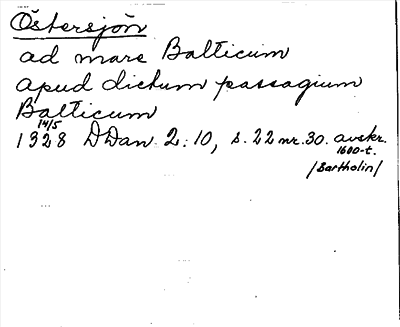 Östersjön
ad mare Balticum
apud dictum passagium
Balticum
14/5
1328 DDan. 2:10, s. 22 nr. 30. avskr.
1600-t.
/Bartholin/